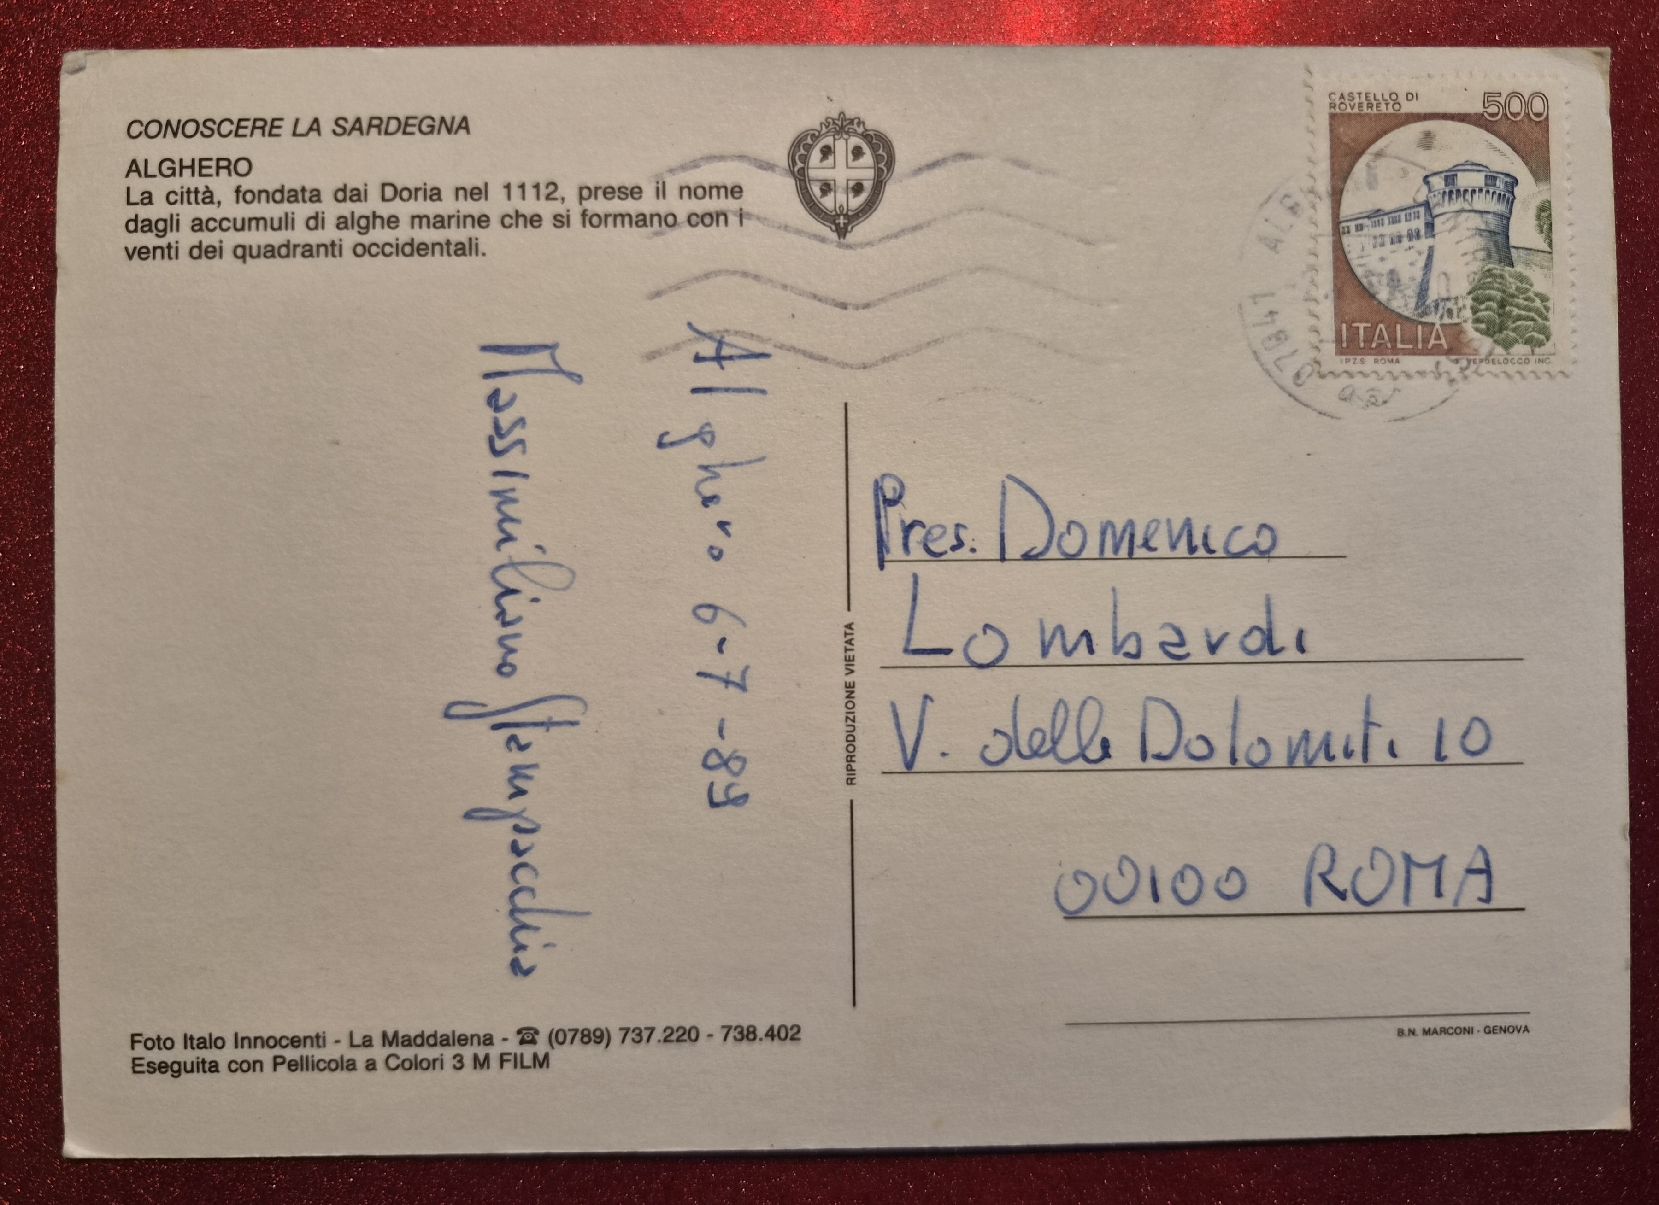 CONOSCERE LA SARDEGNA
ALGHERO
La città, fondata dai Doria nel 1112, prese il nome
dagli accumuli di alghe marine che si formano con i
venti dei quadranti occidentali.
CASTELLO DI
ROVERETO
500
ITALIA
I.P.Z.S. ROMA
07041
Alghero 6-7-89
Massimiliano Stampacchia
RIPRODUZIONE VIETATA
Pres. Domenico
Lombardi
V. delle Dolomiti 10
00100 ROMA
Foto Italo Innocenti - La Maddalena - ☎ (0789) 737.220 - 738.402
Eseguita con Pellicola a Colori 3 M FILM
B.N. MARCONI - GENOVA